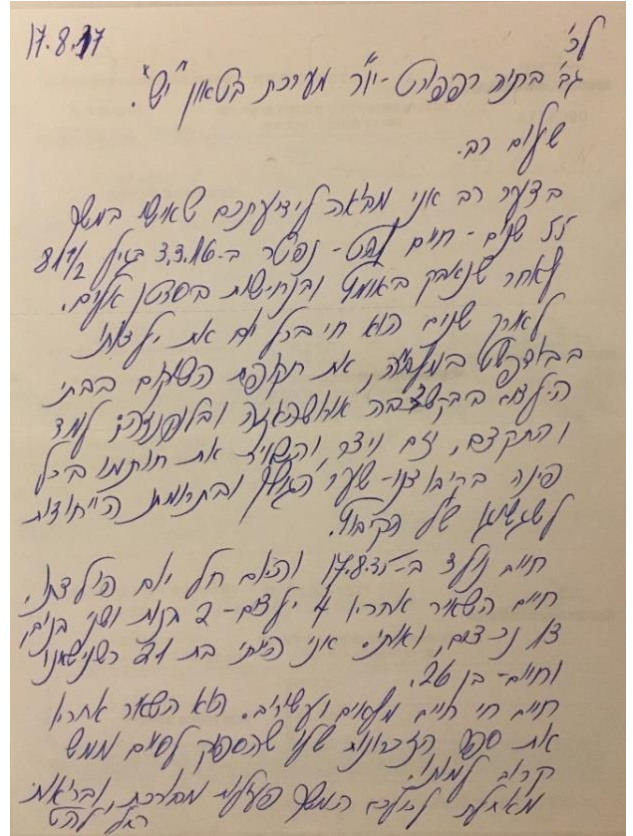 17.8.17
לכ'
גב' בתיה רפפורט - יו"ר מערכת בטאון "יש".
שלום רב.
בצער רב אני מביאה לידיעתכם שאישי במשך
55 שנים - חיים להט - נפטר ב-3.3.16 בגיל 81 1/2
לאחר שנאבק באומץ ובנחישות בסרטן אלים.
לאורך שנים הוא חי בכל יום את ילדותו
בבודפשט במלחמה, את תקופת השיקום בבתי
הילדים בבקשצ'בה ובלופנצהה; למד
והתקדם, יזם ויצר, והשאיר את חותמו בכל
פינה בקיבוצנו - שער הגולן ובתרומתו הייחודית
לשגשוגו של הקיבוץ.
חיים נולד ב-17.8.35 והיום חל יום הולדתו.
חיים השאיר אחריו 4 ילדים - 2 בנות ושני בנים,
13 נכדים, ואותי. אני הייתי בת 21 כשנישאנו
וחיים - בן 26.
חיים חי חיים מלאים ועשירים. הוא השאיר אחריו
את ספר הזכרונות שלו שהספיק לסיים ממש
קרוב למותו.
מאחלת לכולכם המשך פעילות מבורכת, ובריאות
רחל להט